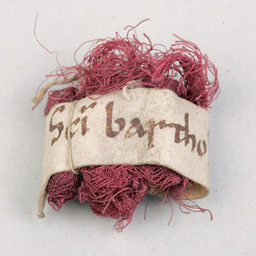 Scī bartho